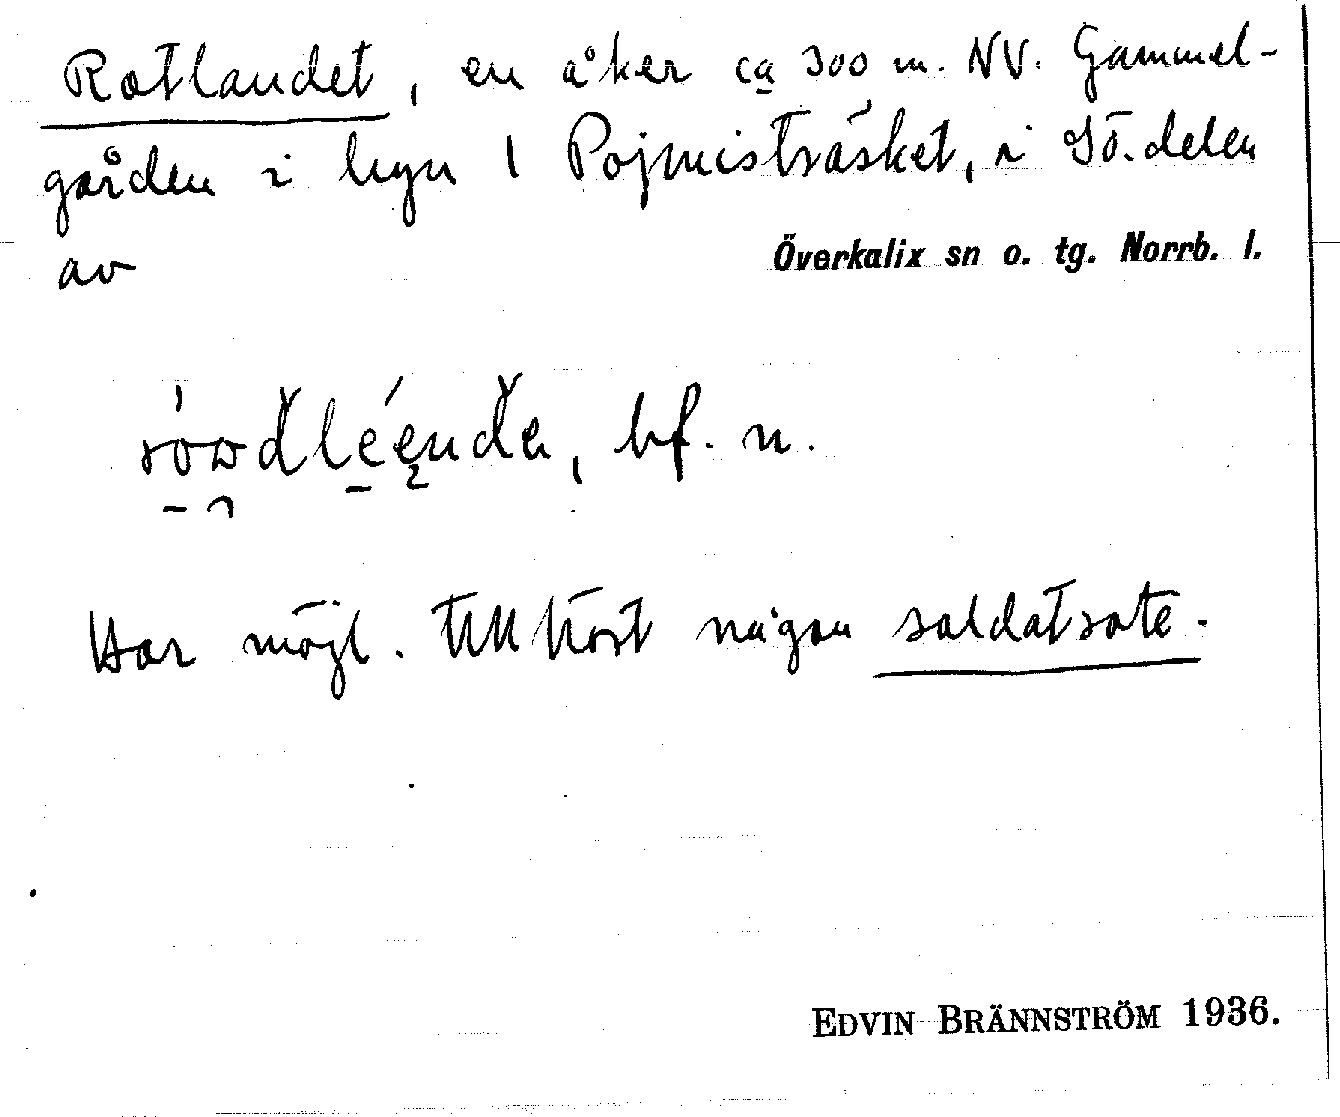 Rotlandet, en åker ca 300 m. NV. Gammel-
gården i byn 1 Pojmisträsket, i Sö. delen
av Överkalix sn o. tg. Norrb. l.
bf. n.
Har möjl. tillhört någon soldatrote.
EDVIN BRÄNNSTRÖM 1936.